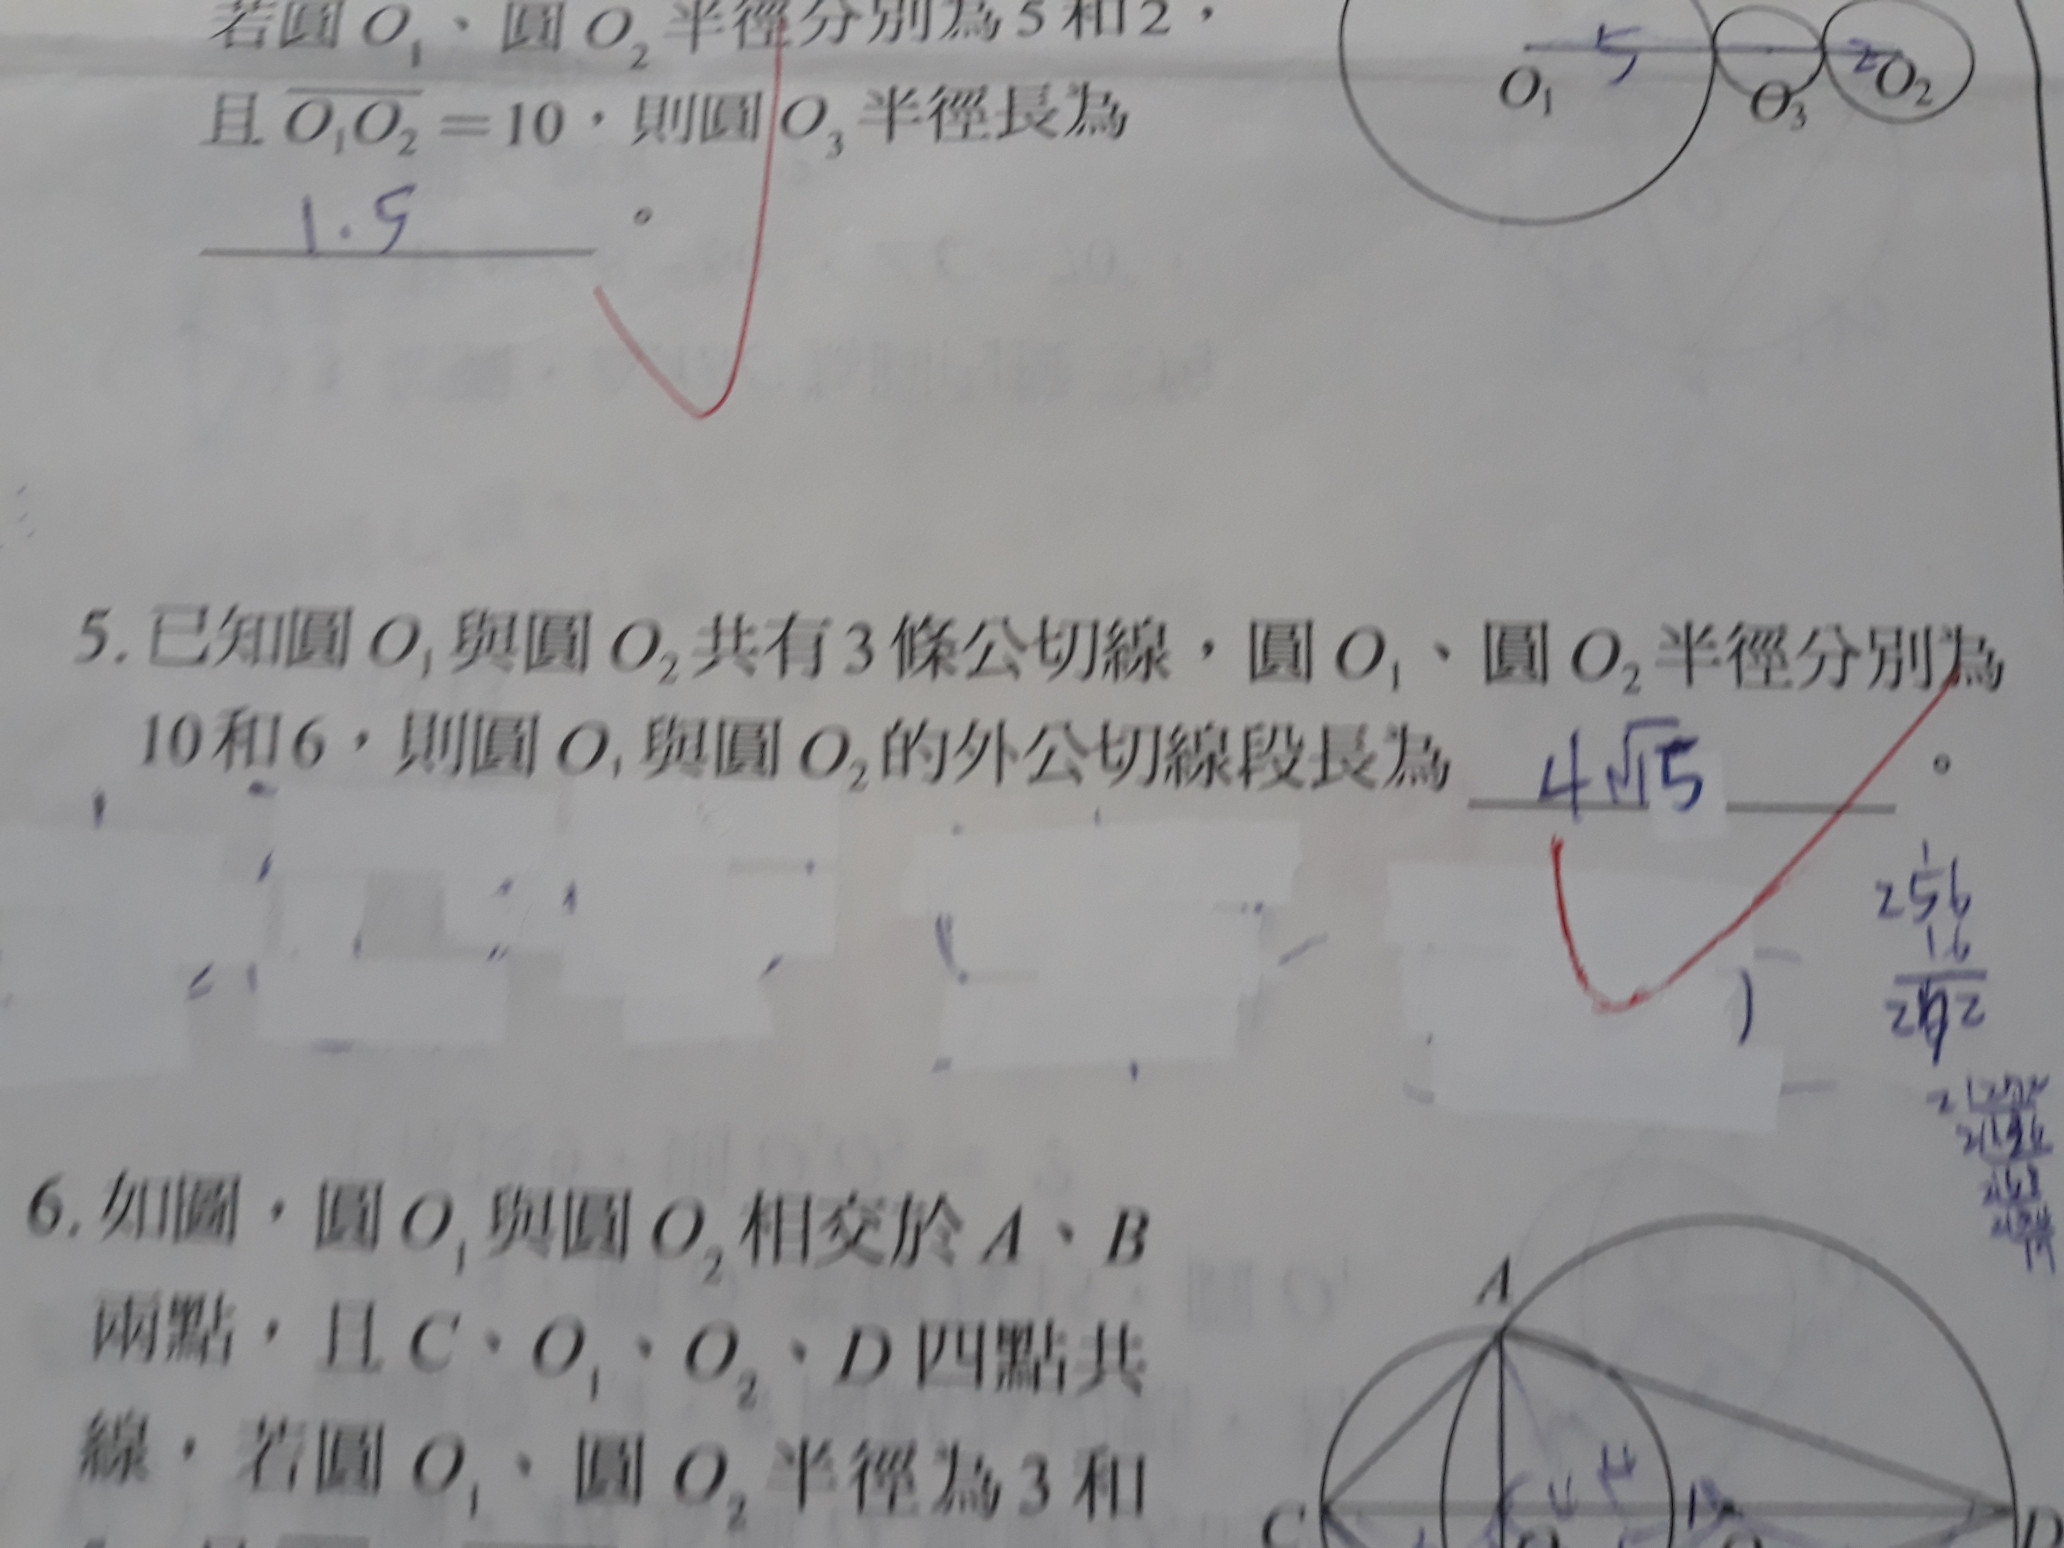 若圓 O₁、圓 O₂ 半徑分別為 5 和 2，
且 O₁O₂ = 10，則圓 O₃ 半徑長為
1.5 。
O₁ 5 O₃ 2 O₂
5. 已知圓 O₁ 與圓 O₂ 共有 3 條公切線，圓 O₁、圓 O₂ 半徑分別為
10 和 6，則圓 O₁ 與圓 O₂ 的外公切線段長為 4√15 。
256
16
6. 如圖，圓 O₁ 與圓 O₂ 相交於 A、B
兩點，且 C、O₁、O₂、D 四點共
線，若圓 O₁、圓 O₂ 半徑為 3 和
A
C
D